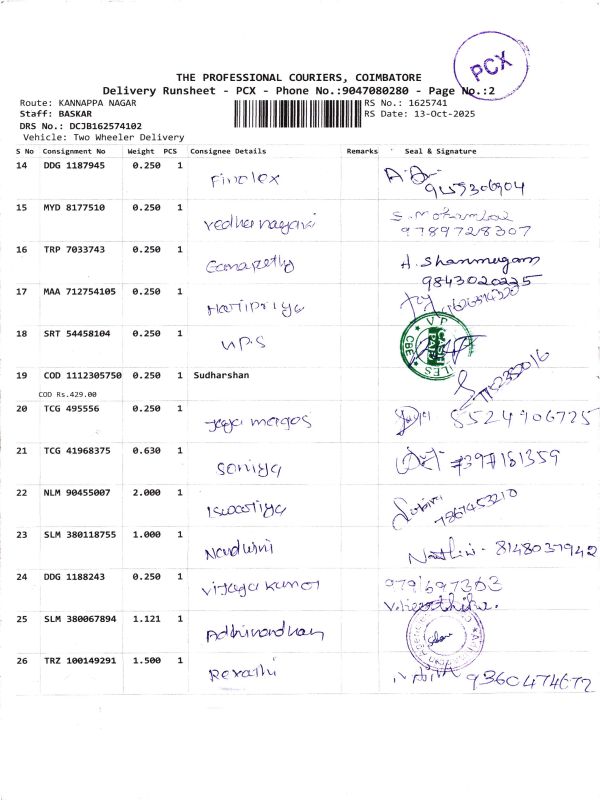 PCX
THE PROFESSIONAL COURIERS, COIMBATORE
Delivery Runsheet - PCX - Phone No.:9047080280 - Page No.:2
Route: KANNAPPA NAGAR RS No.: 1625741
Staff: BASKAR RS Date: 13-Oct-2025
DRS No.: DCJB162574102
Vehicle: Two Wheeler Delivery
S No Consignment No Weight PCS Consignee Details Remarks Seal & Signature
14 DDG 1187945 0.250 1 Finolex
15 MYD 8177510 0.250 1
9789728307
16 TRP 7033743 0.250 1 Ganapethy A. Shanmugam
9843020225
17 MAA 712754105 0.250 1 Haripriya
18 SRT 54458104 0.250 1 V.P.S V P CBE
19 COD 1112305750 0.250 1 Sudharshan
COD Rs.429.00
20 TCG 495556 0.250 1 8524906725
21 TCG 41968375 0.630 1 Soniya 7397181359
22 NLM 90455007 2.000 1 Iswarriya 7867453210
23 SLM 380118755 1.000 1 Nandhini Nandhini - 8148037942
24 DDG 1188243 0.250 1 Vijayakumar 9791697363
V. Keerthika.
25 SLM 380067894 1.121 1
26 TRZ 100149291 1.500 1 Revathi 9360474672